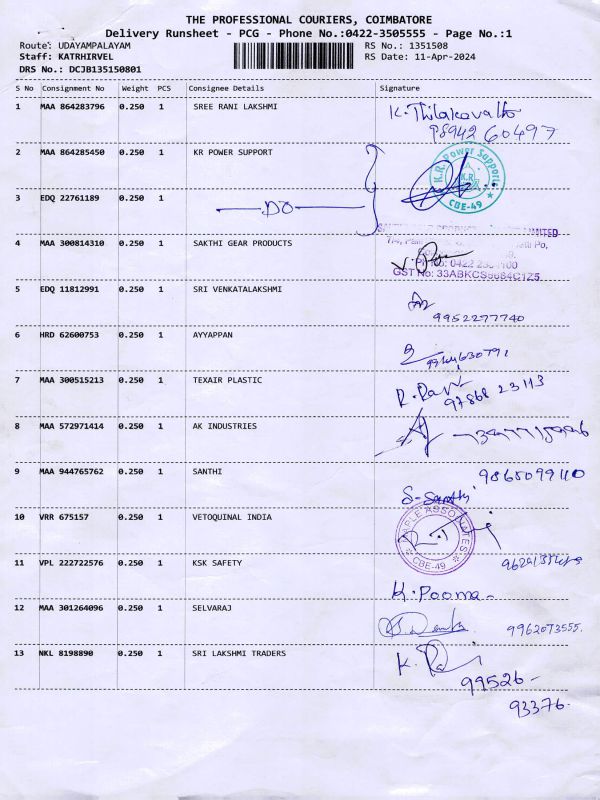 THE PROFESSIONAL COURIERS, COIMBATORE
Delivery Runsheet - PCG - Phone No.:0422-3505555 - Page No.:1
Route: UDAYAMPALAYAM RS No.: 1351508
Staff: KATRHIRVEL RS Date: 11-Apr-2024
DRS No.: DCJB135150801
S No Consignment No Weight PCS Consignee Details Signature
1 MAA 864283796 0.250 1 SREE RANI LAKSHMI K. Thilakavathi
98942 60497
2 MAA 864285450 0.250 1 KR POWER SUPPORT
K.R. Power Support
K.R.
CBE-49
3 EDQ 22761189 0.250 1 DO
LIMITED
4 MAA 300814310 0.250 1 SAKTHI GEAR PRODUCTS
Ph No: 0422
GST No: 33ABKCS9684C1Z5
5 EDQ 11812991 0.250 1 SRI VENKATALAKSHMI
9952277740
6 HRD 62600753 0.250 1 AYYAPPAN
7 MAA 300515213 0.250 1 TEXAIR PLASTIC R. Ravi
97868 23113
8 MAA 572971414 0.250 1 AK INDUSTRIES
9 MAA 944765762 0.250 1 SANTHI 9865099110
S. Santhi
10 VRR 675157 0.250 1 VETOQUINAL INDIA
MAPLE ASSOCIATES
CBE-49
11 VPL 222722576 0.250 1 KSK SAFETY
K. Pooma
12 MAA 301264096 0.250 1 SELVARAJ
9962073555.
13 NKL 8198890 0.250 1 SRI LAKSHMI TRADERS
99526-
93376-